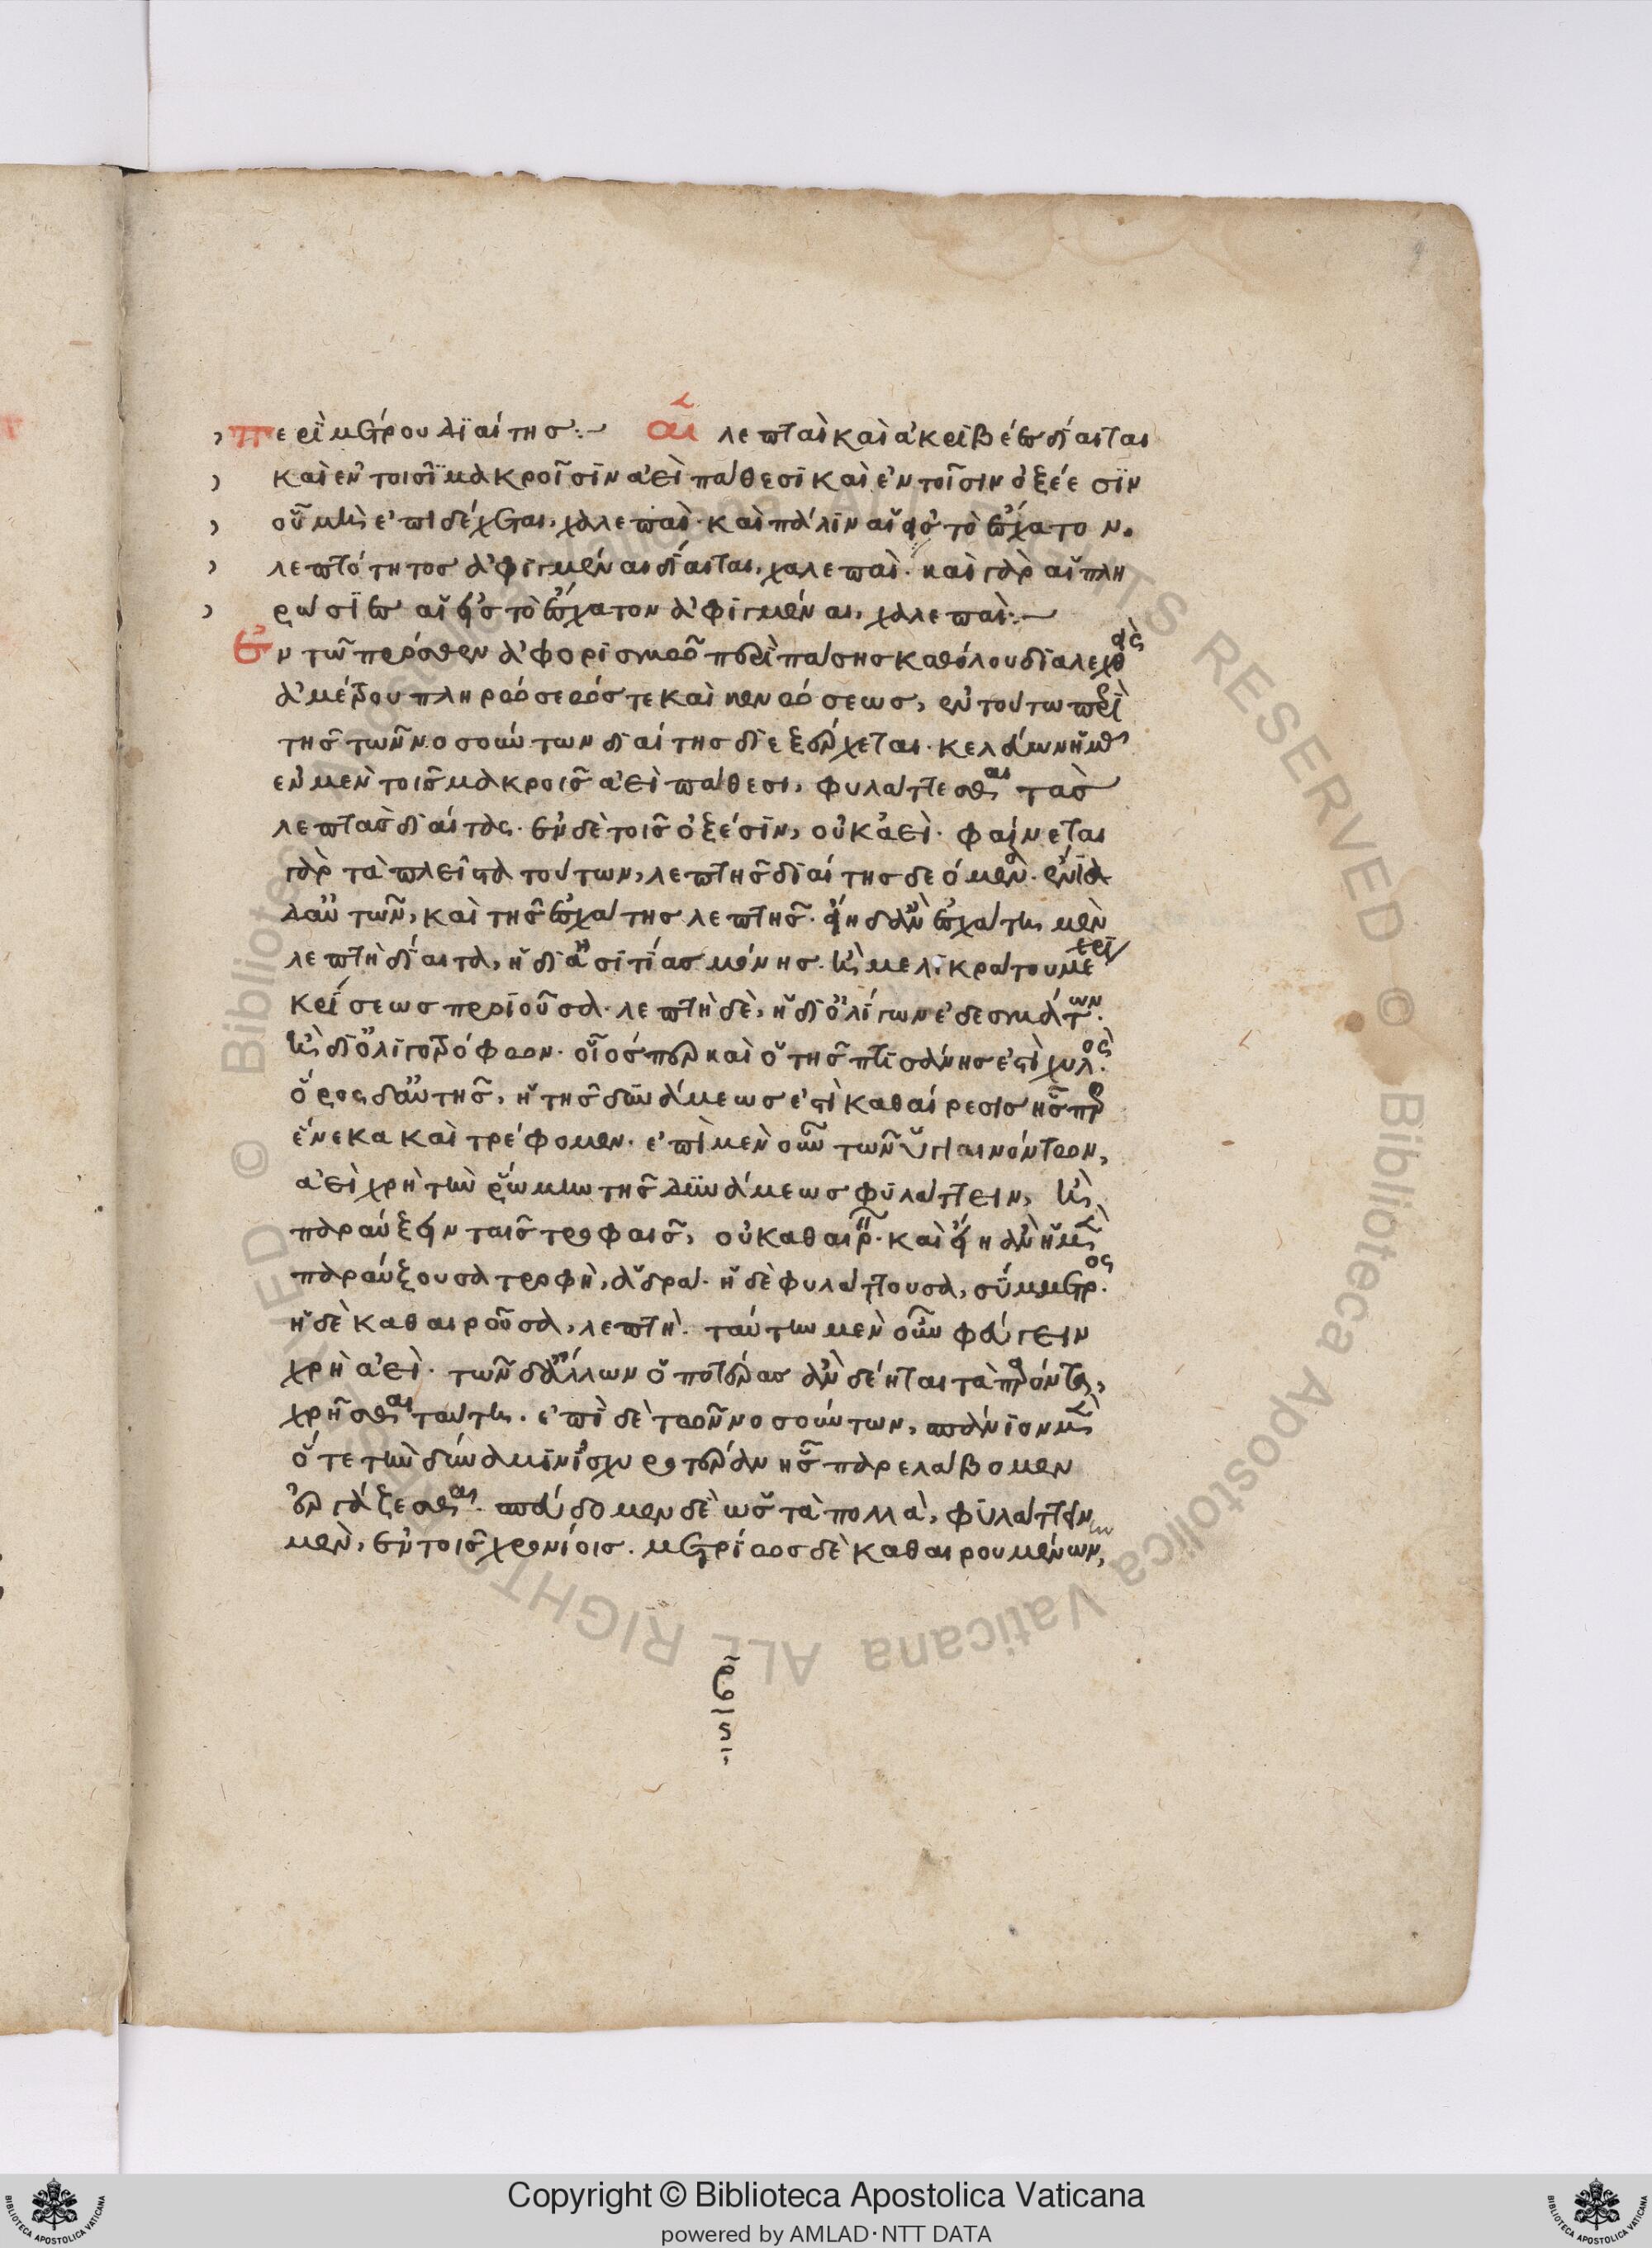 περὶ μετρου διαίτης:~ αἱ λεπταὶ καὶ ἀκριβέες δίαιται
καὶ ἐν τοισῒ μακροῖσιν ἀεὶ πάθεσι καὶ ἐν τοῖσιν ὀξέεσϊν
οὗ μὴ ἐπιδέχεται, χαλεπαὶ· καὶ πάλιν αἱ ἐς τὸ ἔσχατον.
λεπτότητος ἀφιγμέναι δίαιται, χαλεπαὶ· καὶ γὰρ αἱ πλη
ρώσϊες αἱ ἐς τὸ ἔσχατον ἀφιγμέναι, χαλεπαὶ:~
Ἐν τῶ πρόσθεν ἀφορισμῶ περὶ πάσης καθόλου διαλεχθεὶς
ἀμέτρου πληρώσεώς τε καὶ κενώσεως, ἐν τούτω περὶ
τῆς τῶν νοσούντων διαίτης διεξέρχεται· κελεύων ἡμῖν
ἐν μὲν τοῖς μακροῖς ἀεὶ πάθεσι, φυλάττεσθαι τὰς
λεπτὰς διαίτας· ἐν δὲ τοῖς ὀξέσιν, οὐκ ἀεὶ· φαίνεται
γὰρ τὰ πλεῖστα τούτων, λεπτῆς διαίτης δεόμενα· ἔνια
δ' αὐτῶν, καὶ τῆς ἐσχάτης λεπτῆς· εἴη δ' ἂν ἐσχάτη μὲν
λεπτὴ δίαιτα, ἡ δι' ἀσιτίας μόνης· ἢ μελικράτου μέχρι
κρίσεως προϊοῦσα· λεπτὴ δὲ, ἡ δι' ὀλίγων ἐδεσμάτων·
ἢ δι' ὀλιγοτρόφων· οἷός περ καὶ ὁ τῆς πτισάνης ἐστὶ χυλός·
ὅρος δ' αὐτῆς, ἡ τῆς δυνάμεως ἐστὶ καθαίρεσις ἧς περ
ἕνεκα καὶ τρέφομεν· ἐπὶ μὲν οὖν τῶν ὑγιαινόντων,
ἀεὶ χρὴ τὴν ῥώμην τῆς δυνάμεως φυλάττειν, ἢ
παραύξειν ταῖς τροφαῖς, οὐ καθαιρεῖν· καὶ εἴη ἂν ἡ μὲν
παραύξουσα τροφὴ, ἁδρά· ἡ δὲ φυλάττουσα, σύμμετρος·
ἡ δὲ καθαιροῦσα, λεπτὴ· ταύτην μὲν οὖν φεύγειν
χρὴ ἀεὶ· τῶν δ' ἄλλων ὁποτέρας ἂν δέηται τὰ παρόντα,
χρῆσθαι ταύτη· ἐπὶ δὲ τῶν νοσούντων, σπάνιον μὲν
ὅτε τὴν δύναμιν ἰσχυροτέραν ἧς παρελάβομεν
ἐργάζεσθαι· σπεύδομεν δὲ ὡς τὰ πολλὰ, φυλάττειν
μὲν, ἐν τοῖς χρονίοις· μετρίως δὲ καθαιρουμένων,